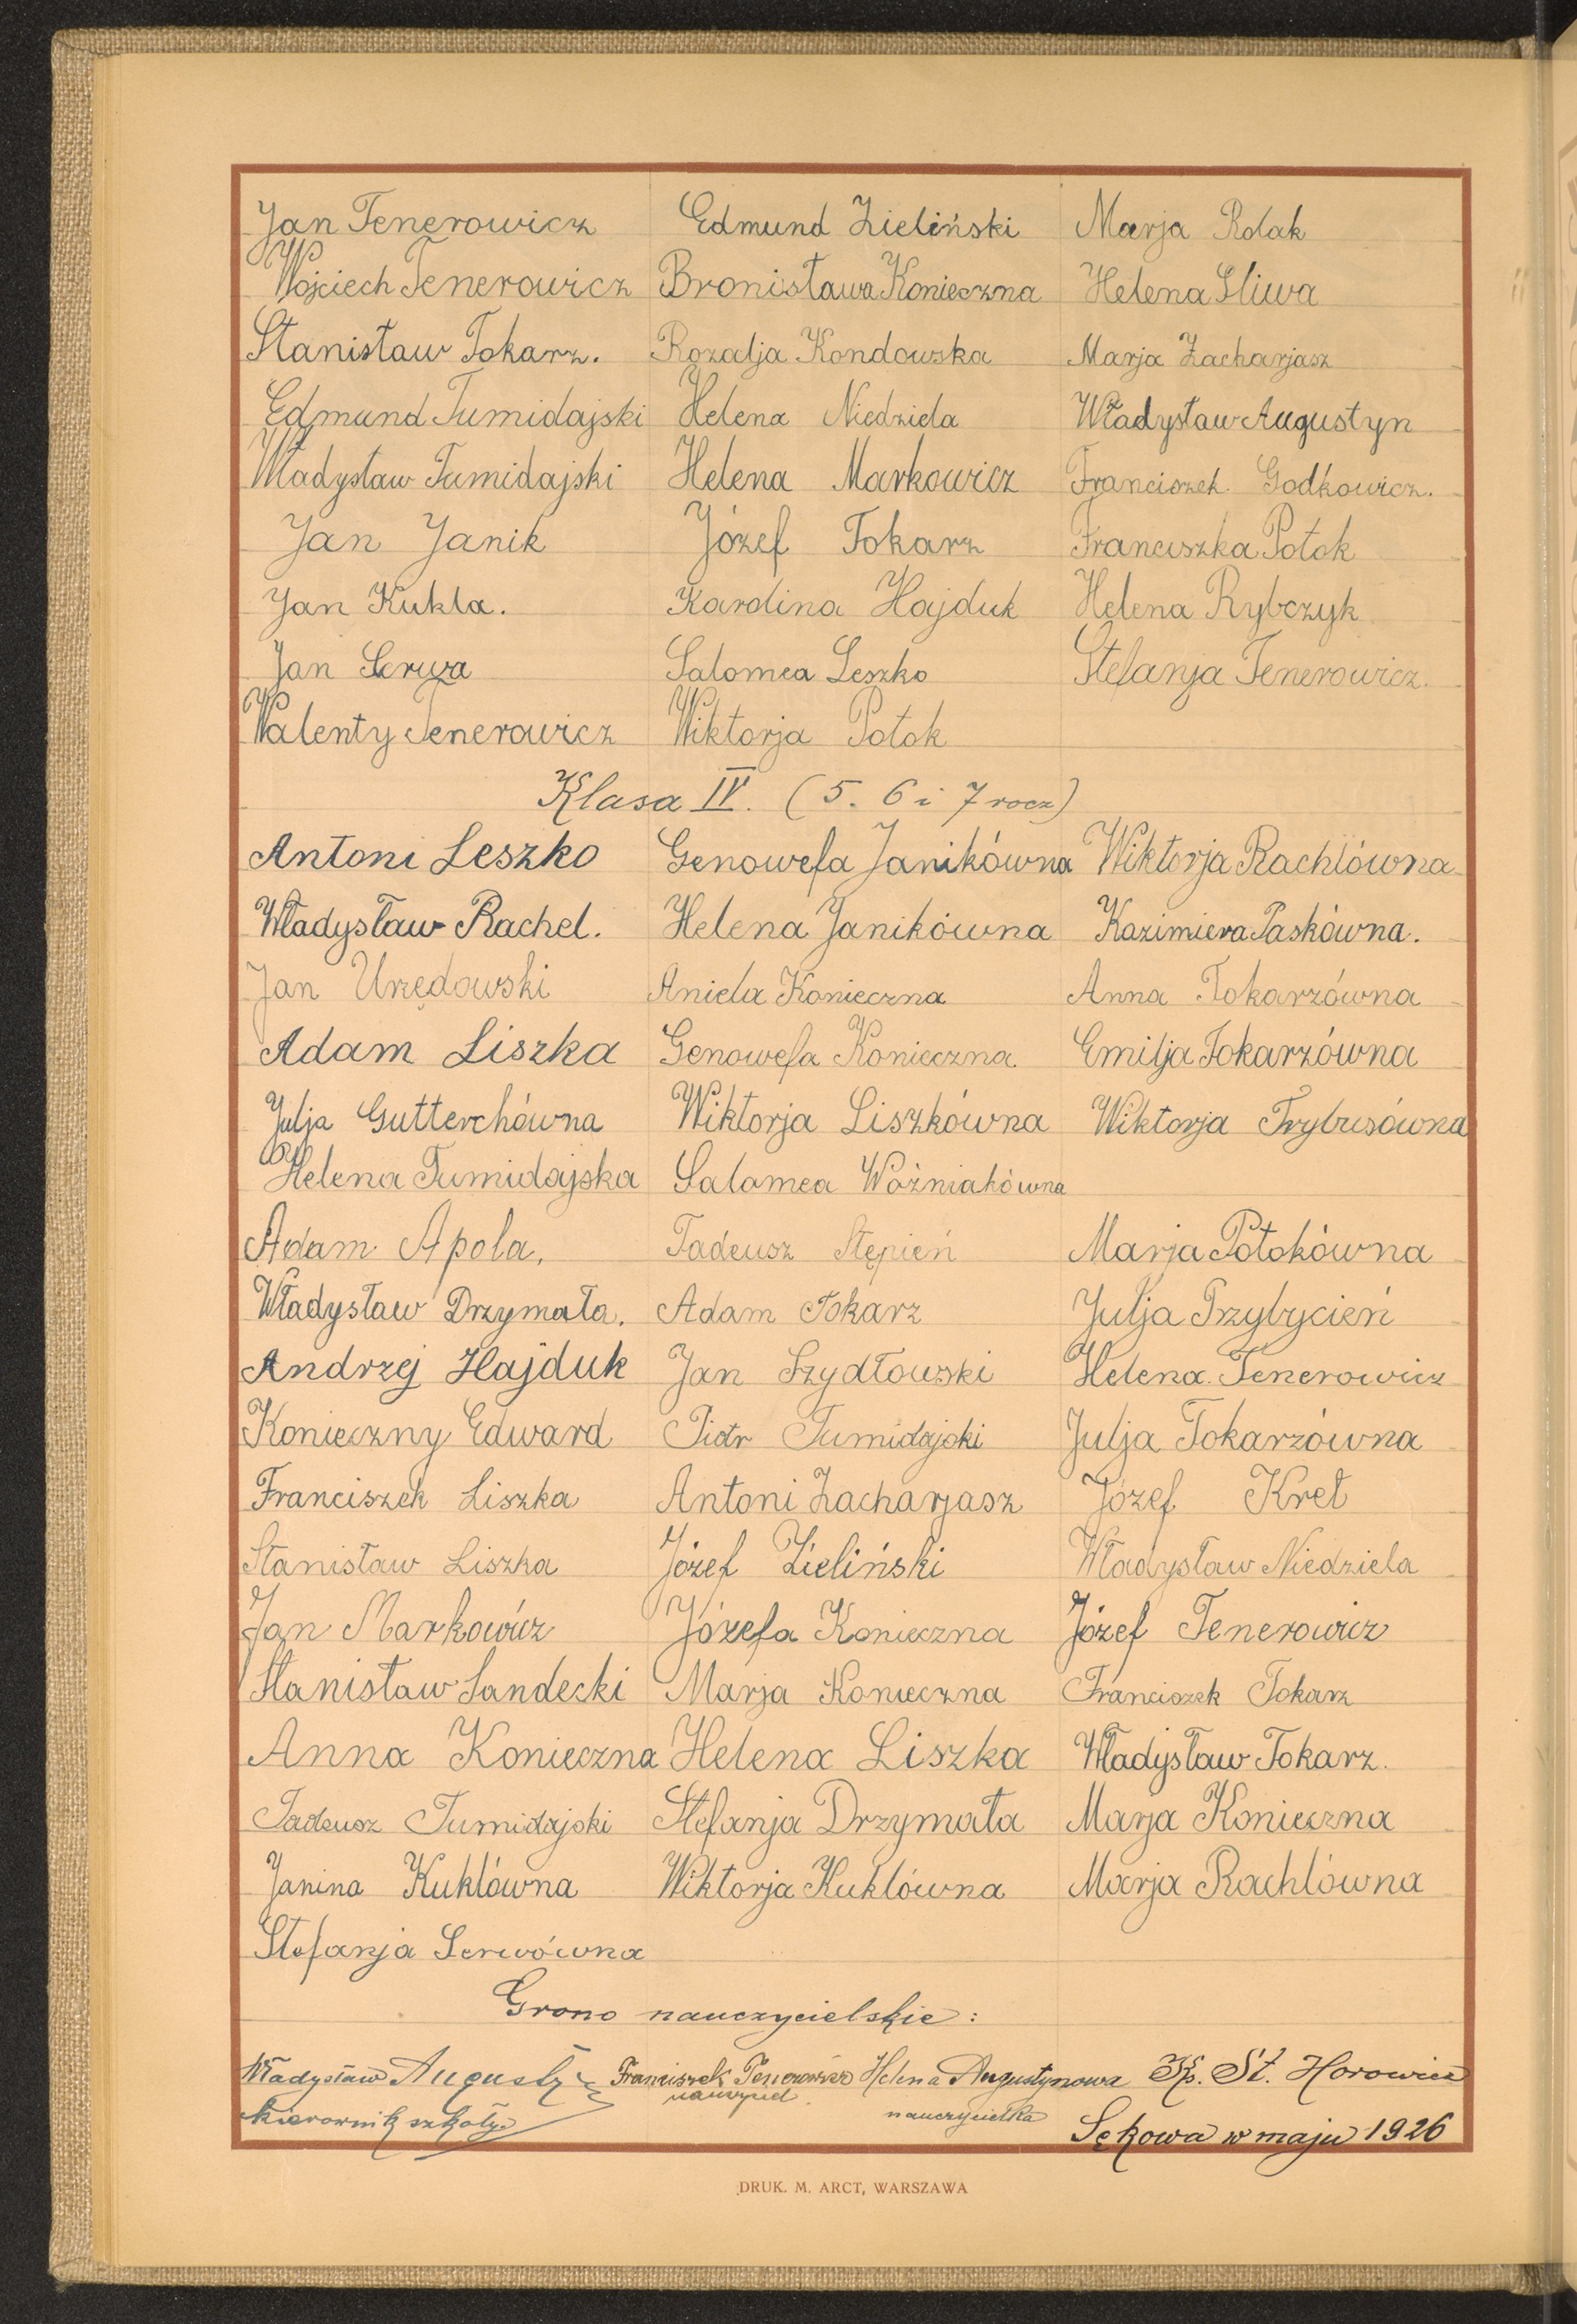 Jan Tenerowicz Edmund Zieliński Marja Rolak
Wojciech Tenerowicz Bronisława Konieczna Helena Sliwa
Stanisław Tokarz. Rozalja Kondowska Marja Zacharjasz
Edmund Tumidajski Helena Niedziela Władysław Augustyn
Władysław Tumidajski Helena Markowicz Franciszek Godkowicz.
Jan Janik Józef Tokarz Franciszka Potok
Jan Kukla. Karolina Hajduk Helena Rybczyk
Jan Serwa Salomea Leszko Stefanja Tenerowicz.
Walenty Tenerowicz Wiktorja Potok
Klasa IV. (5. 6 i 7 rocz)
Antoni Leszko Genowefa Janikówna Wiktorja Rachlówna
Władysław Rachel. Helena Janikówna Kazimiera Paskówna.
Jan Urzędowski Aniela Konieczna Anna Tokarzówna
Adam Liszka Genowefa Konieczna Emilja Tokarzówna
Julja Gutterchówna Wiktorja Liszkówna Wiktorja Trybusówna
Helena Tumidajska Salomea Woźniakówna
Adam Apola, Tadeusz Stępień Marja Potokówna
Władysław Drzymała. Adam Tokarz Julja Przybycień
Andrzej Hajduk Jan Szydłowski Helena Tenerowicz
Konieczny Edward Piotr Tumidajski Julja Tokarzówna
Franciszek Liszka Antoni Zacharjasz Józef Kret
Stanisław Liszka Józef Zieliński Władysław Niedziela
Jan Markowicz Józefa Konieczna Józef Tenerowicz
Stanisław Sandecki Marja Konieczna Franciszek Tokarz
Anna Konieczna Helena Liszka Władysław Tokarz.
Tadeusz Tumidajski Stefanja Drzymała Marja Konieczna
Janina Kuklówna Wiktorja Kuklówna Marja Rachlówna
Stefanja Serwówna
Grono nauczycielskie:
Władysław Augustyn Franciszek Tenerowicz Helena Augustynowa Ks. St. Horowicz
kierownik szkoły. nauczyciel. nauczycielka
Sękowa w maju 1926
DRUK. M. ARCT, WARSZAWA